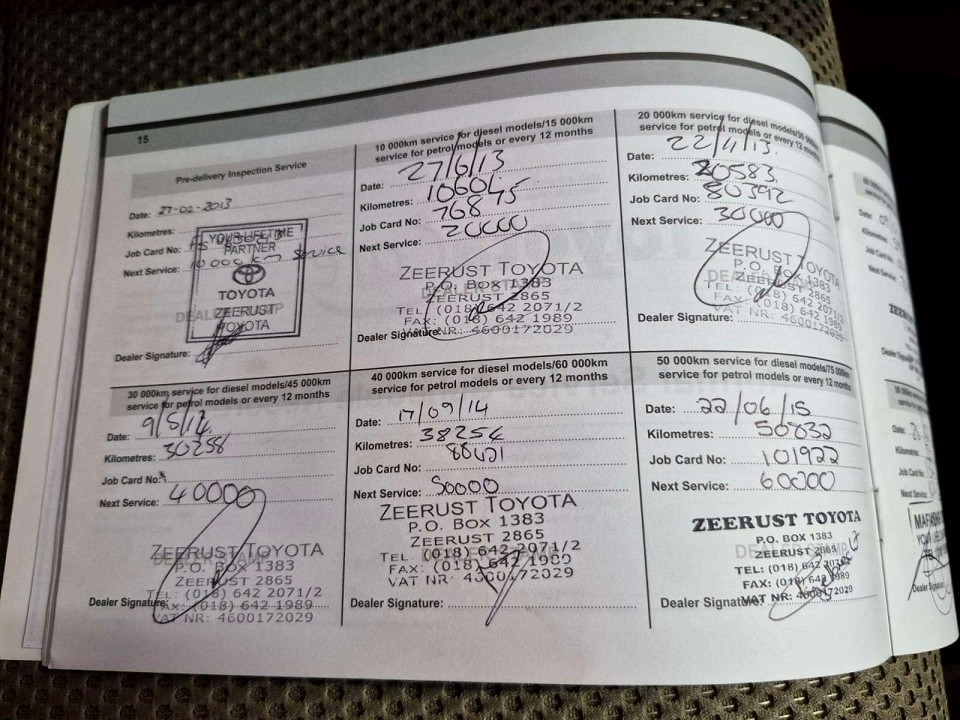 15
Pre-delivery Inspection Service
Date: 27-02-2013
Kilometres:
Job Card No:
Next Service: 10 000 km Service
YOUR LIFETIME
PARTNER
TOYOTA
ZEERUST
TOYOTA
Dealer Signature:
10 000km service for diesel models/15 000km
service for petrol models or every 12 months
Date: 27/6/13
Kilometres:
Job Card No: 76875
Next Service: 20000
ZEERUST TOYOTA
P.O. BOX 1383
ZEERUST 2865
TEL: (018) 642 2071/2
FAX: (018) 642 1989
VAT NR: 4600172029
Dealer Signature:
20 000km service for diesel models/30
service for petrol models or every 12 months
Date: 22/11/13
Kilometres: 20583
Job Card No: 80392
Next Service: 30000
ZEERUST TOYOTA
P.O. BOX 1383
ZEERUST 2865
TEL: (018) 642 2071/2
FAX: (018) 642 1989
VAT NR: 4600172029
Dealer Signature:
30 000km service for diesel models/45 000km
service for petrol models or every 12 months
Date: 9/5/14
Kilometres: 30258
Job Card No:
Next Service: 40000
ZEERUST TOYOTA
P.O. BOX 1383
ZEERUST 2865
TEL: (018) 642 2071/2
FAX: (018) 642 1989
VAT NR: 4600172029
Dealer Signature:
40 000km service for diesel models/60 000km
service for petrol models or every 12 months
Date: 17/09/14
Kilometres: 38254
Job Card No:
Next Service: 50000
ZEERUST TOYOTA
P.O. BOX 1383
ZEERUST 2865
TEL: (018) 642 2071/2
FAX: (018) 642 1989
VAT NR: 4600172029
Dealer Signature:
50 000km service for diesel models/75 000km
service for petrol models or every 12 months
Date: 22/06/15
Kilometres: 50832
Job Card No: 101922
Next Service: 60000
ZEERUST TOYOTA
P.O. BOX 1383
ZEERUST 2865
TEL: (018) 642 2071/2
FAX: (018) 642 1989
VAT NR: 4600172029
Dealer Signature: